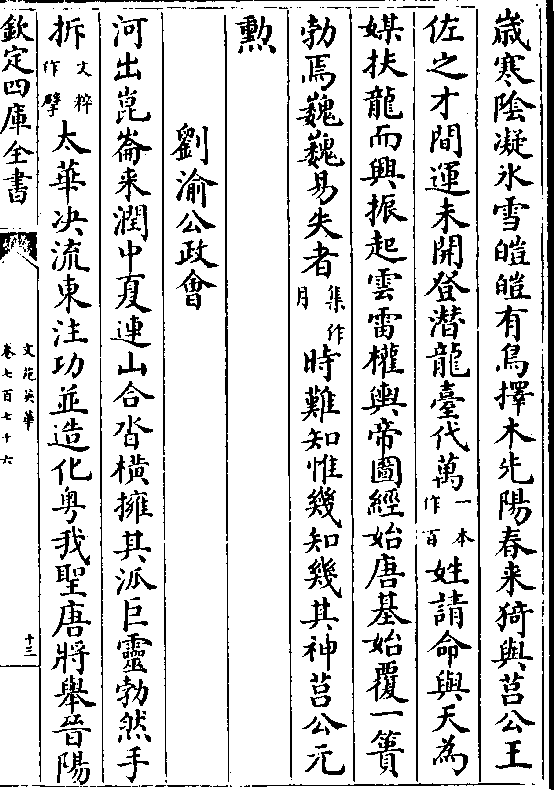 歳寒陰凝氷雪皚皚有鳥擇木先陽春来猗與莒公王
佐之才間運未開登潜龍臺代萬一本作百姓請命與天為
媒扶龍而興振起雲雷權輿帝圖經始唐基始覆一簣
勃焉巍巍易失者集作月時難知惟幾知幾其神莒公元
勲
劉渝公政會
河出崑崙来潤中夏連山合沓橫擁其派巨靈勃然手
拆文粹作擘太華决流東注功並造化粤我聖唐將舉晉陽
欽定四庫全書
文苑英華
卷七百七十六
十三